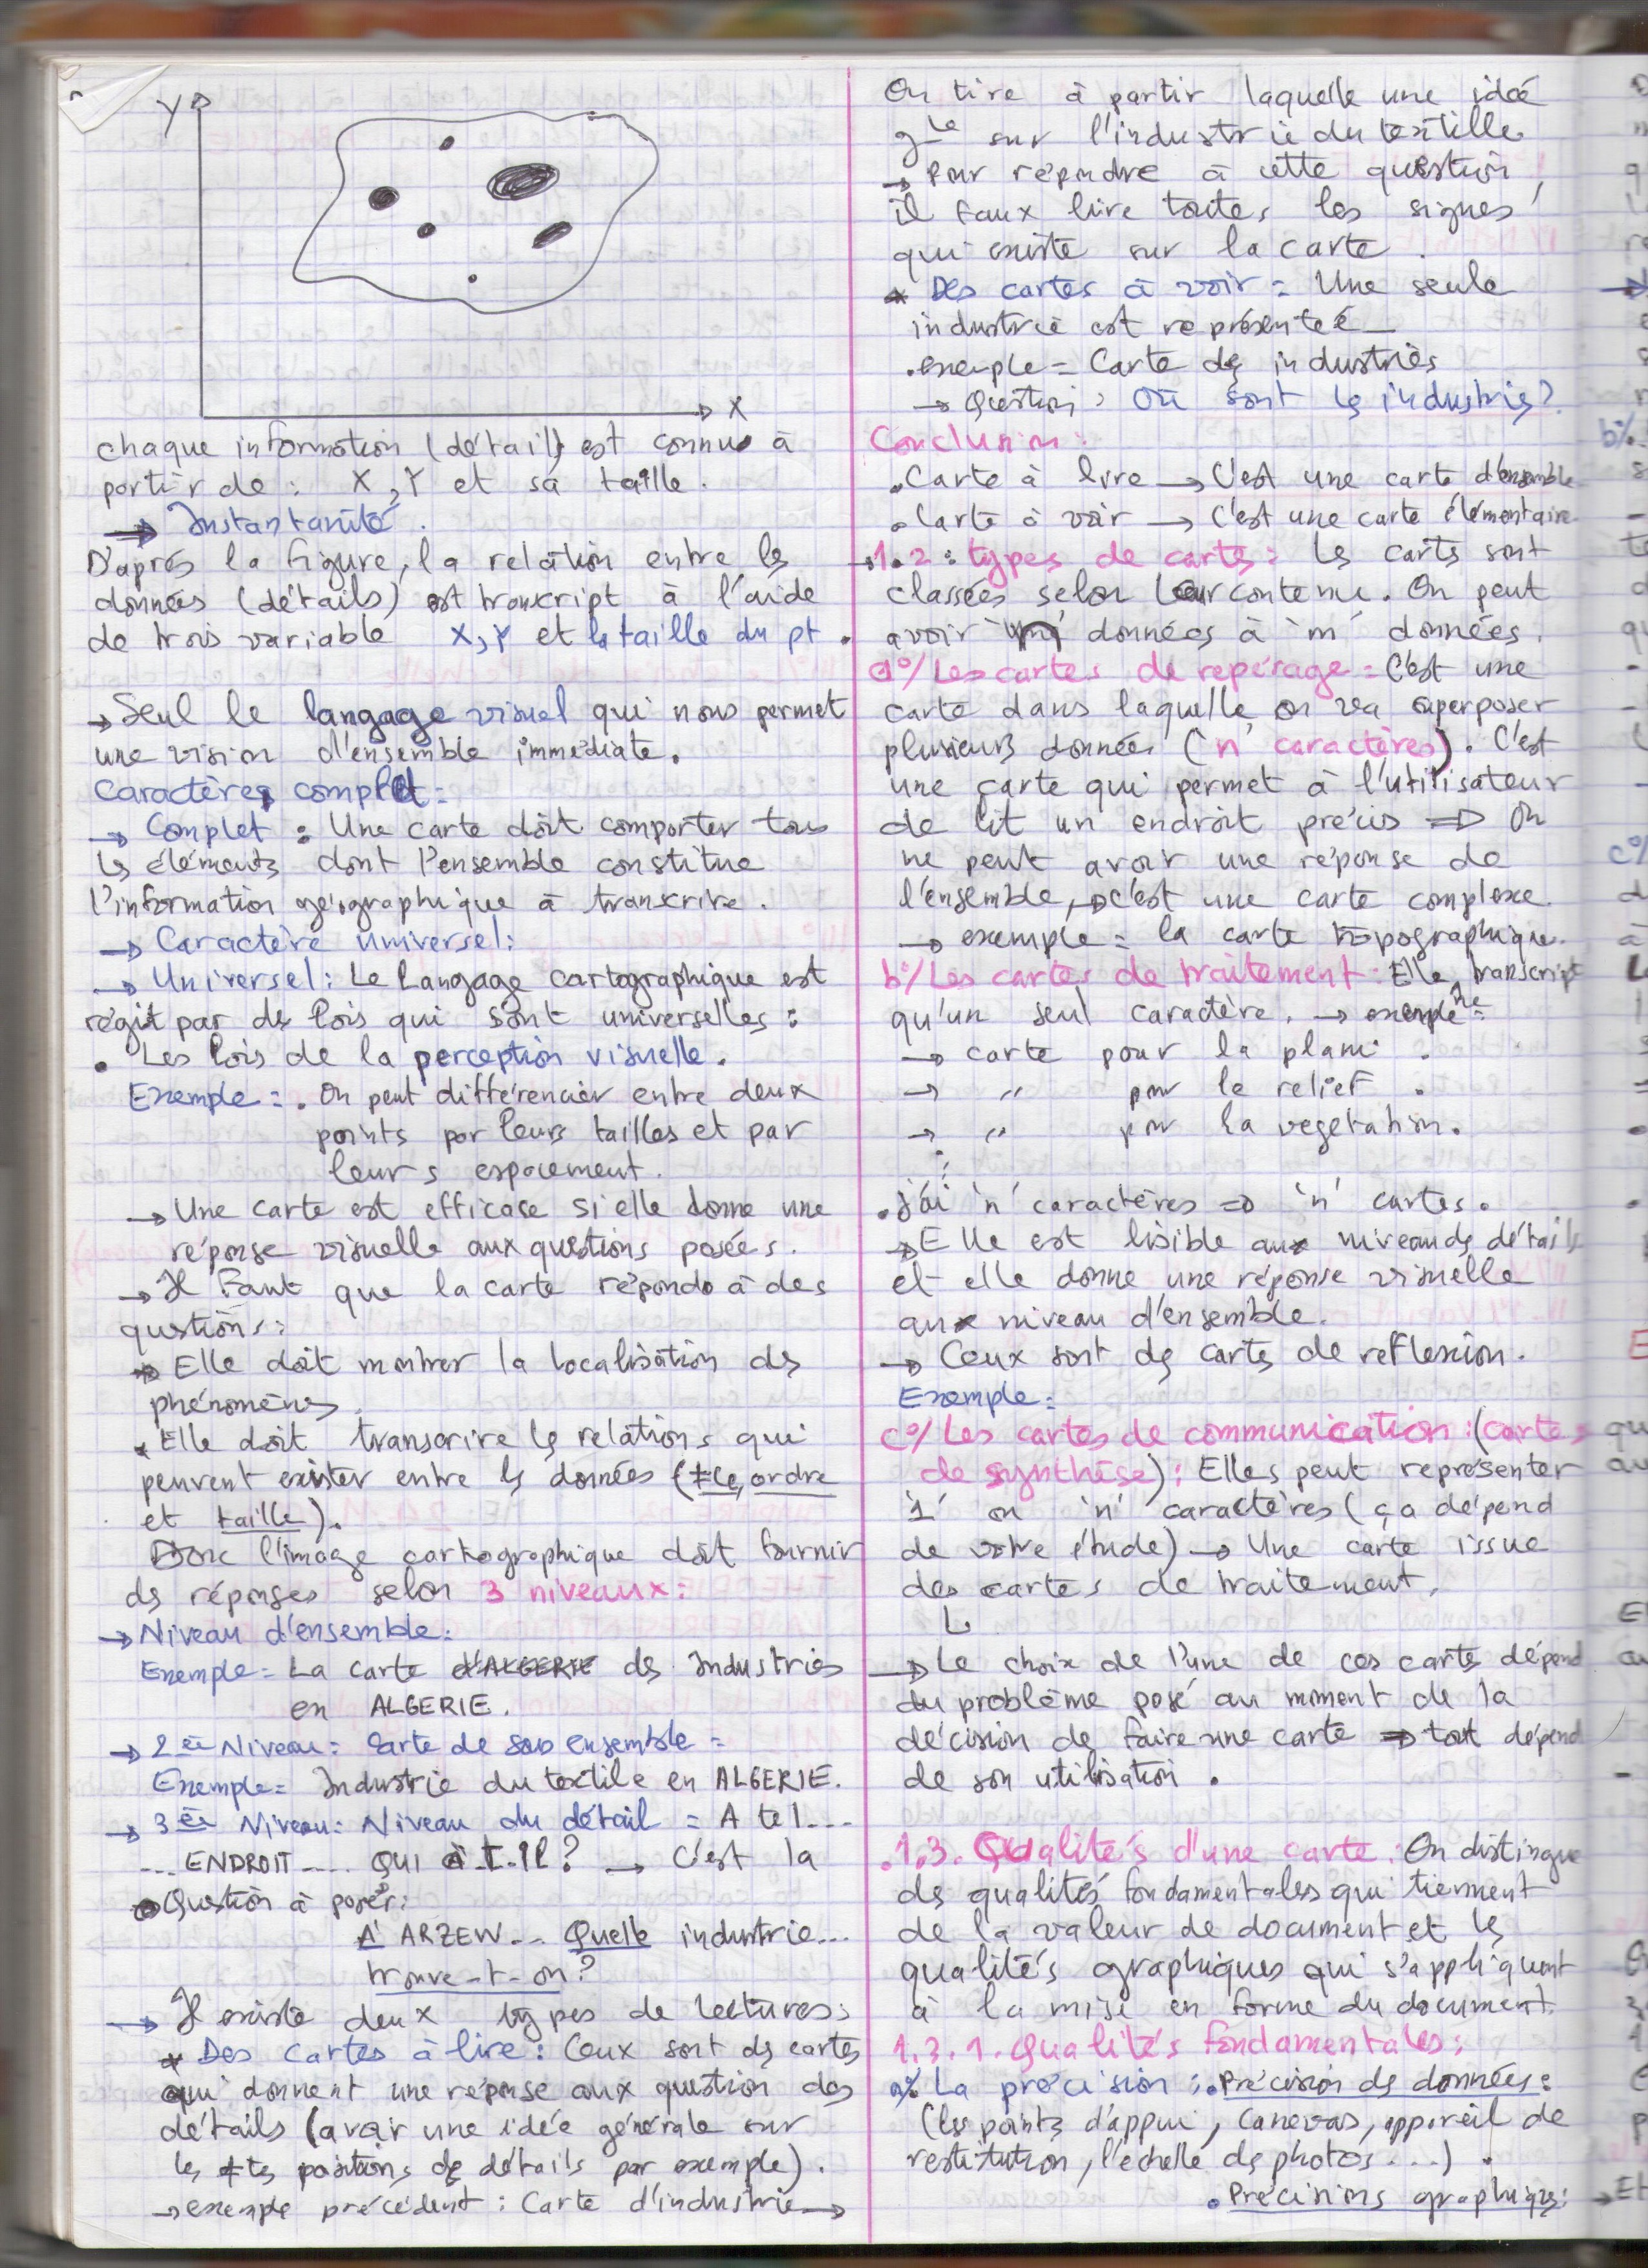 Y
X
chaque information (détail) est connue à
partir de : X, Y et sa taille.
→ Instantanité.
D'après la figure, la relation entre les
données (détails) est transcript à l'aide
de trois variable X, Y et la taille du pt.
→ Seul le langage visuel qui nous permet
une vision d'ensemble immédiate.
Caractères complet :
→ Complet : Une carte doit comporter tous
les éléments dont l'ensemble constitue
l'information géographique à transcrire.
→ Caractère universel :
→ Universel : Le langage cartographique est
régit par des lois qui sont universelles :
• Les lois de la perception visuelle.
Exemple = • On peut différencier entre deux
points par leurs tailles et par
leurs espacement.
→ Une carte est efficase si elle donne une
réponse visuelle aux questions posées.
→ Il faut que la carte réponde à des
qustions :
→ Elle doit montrer la localisation des
phénomènes.
* Elle doit transcrire les relations qui
peuvent exister entre les données (≠ce, ordre
et taille).
Donc l'image cartographique doit fournir
des réponses selon 3 niveaux :
→ Niveau d'ensemble :
Exemple = La carte d'ALGERIE des industries
en ALGERIE.
→ 2èe Niveau = Carte de sous ensemble =
Exemple = Industrie du textile en ALGERIE.
→ 3èe Niveau : Niveau du détail = A tel ...
... ENDROIT .... QUI a-t-il ? → C'est la
• Question à poser :
A' ARZEW... Quelle industrie...
trouve-t-on ?
→ Il existe deux types de lectures :
* Des cartes à lire : Ceux sont des cartes
qui donnent une réponse aux question des
détails (avoir une idée générale sur
les ≠tes positions de détails par exemple).
→ exemple précédent : Carte d'industrie →
On tire à partir laquelle une idée
gle sur l'industrie du textille
→ Pour répondre à cette question,
il faux lire toutes les signes
qui existe sur la carte.
* Des cartes à voir = Une seule
industrie est représentée
• exemple = Carte des industries
→ Question : Où sont les industries ?
Conclusion :
• Carte à lire → C'est une carte d'ensemble
• Carte à voir → C'est une carte élémentaire.
1.2 : types de cartes = les cartes sont
classées selon leur contenu. On peut
avoir 'n' données à 'm' données.
a°/ Les cartes de repérage = C'est une
carte dans laquelle on va superposer
plusieurs données ('n' caractères). C'est
une carte qui permet à l'utilisateur
de lit un endroit précis ⇒ On
ne peut avoir une réponse de
l'ensemble, → c'est une carte complexe.
→ exemple = la carte topographique.
b°/ Les cartes de traitement : Elle ne transcript
qu'un seul caractère. → exemple =
→ carte pour la plani.
→ " pour le relief.
→ " pour la vegetation.
• j'ai 'n' caractères ⇒ 'n' cartes.
→ Elle est lisible aux niveau de détails
et elle donne une réponse visuelle
aux niveau d'ensemble.
→ Ceux sont des cartes de reflexion.
Exemple :
c°/ Les cartes de communication : (cartes
de synthèse) : Elles peut représenter
'1' ou 'n' caractères (ça dépend
de votre étude) → Une carte issue
des cartes de traitement.
→ Le choix de l'une de ces cartes dépend
du problème posé au moment de la
décision de faire une carte ⇒ tout dépend
de son utilisation.
1.3. Qualités d'une carte : On distingue
des qualités fondamentales qui tiennent
de la valeur de document et les
qualités graphiques qui s'appliquent
à la mise en forme du document.
1.3.1. Qualités fondamentales :
a°/ La précision : • Précision de données :
(les points d'appui, canevas, appareil de
restitution, l'échelle des photos ...).
• Précisions graphiques :